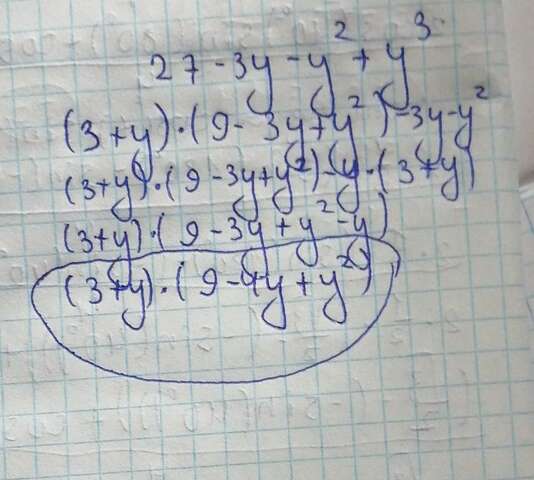 27 - 3y - y² + y³
(3+y)·(9 - 3y + y²) - 3y - y²
(3+y)·(9 - 3y + y²) - y·(3+y)
(3+y)·(9 - 3y + y² - y)
(3+y)·(9 - 4y + y²)